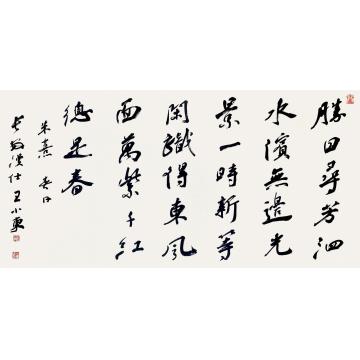 勝日尋芳泗
水濱無邊光
景一時新等
閑識得東風
面萬紫千紅
總是春
朱熹 春日
王小東